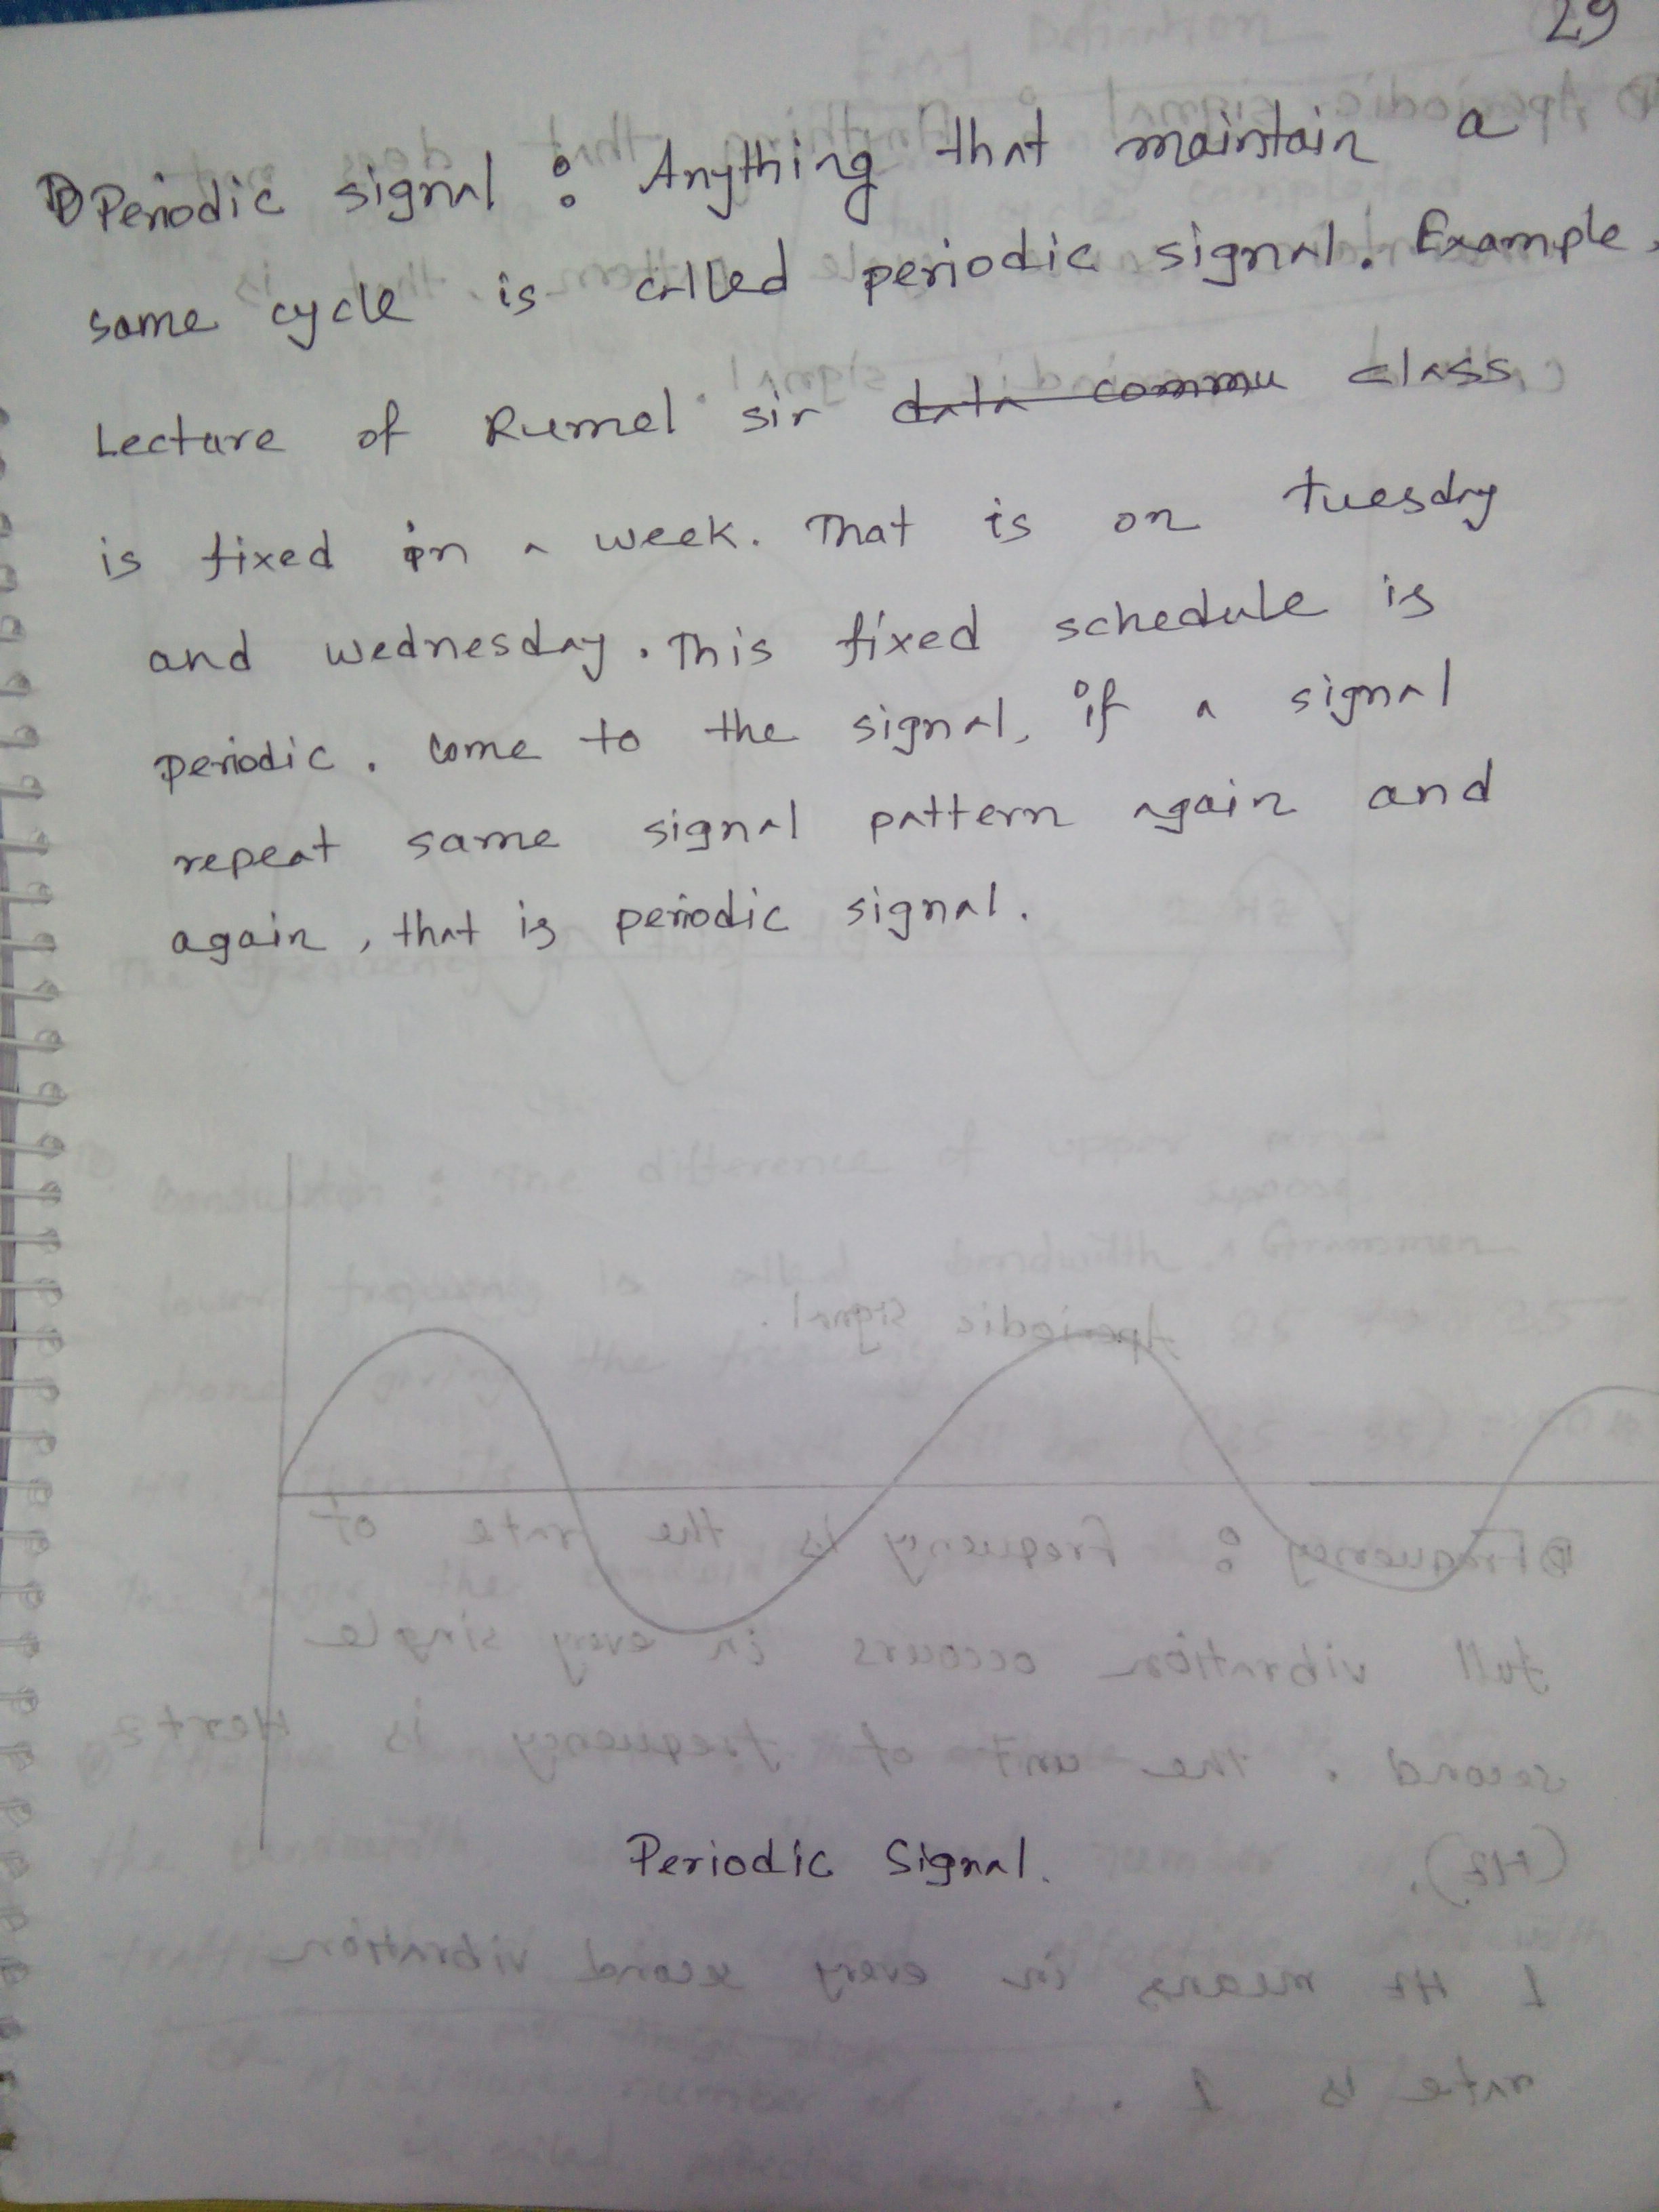 29
Periodic signal : Anything that maintain a
same cycle is called periodic signal. Example,
Lecture of Rumel sir data commu class
is fixed in a week. That is on tuesday
and wednesday. This fixed schedule is
periodic. Come to the signal, if a signal
repeat same signal pattern again and
again, that is periodic signal.
Periodic Signal.